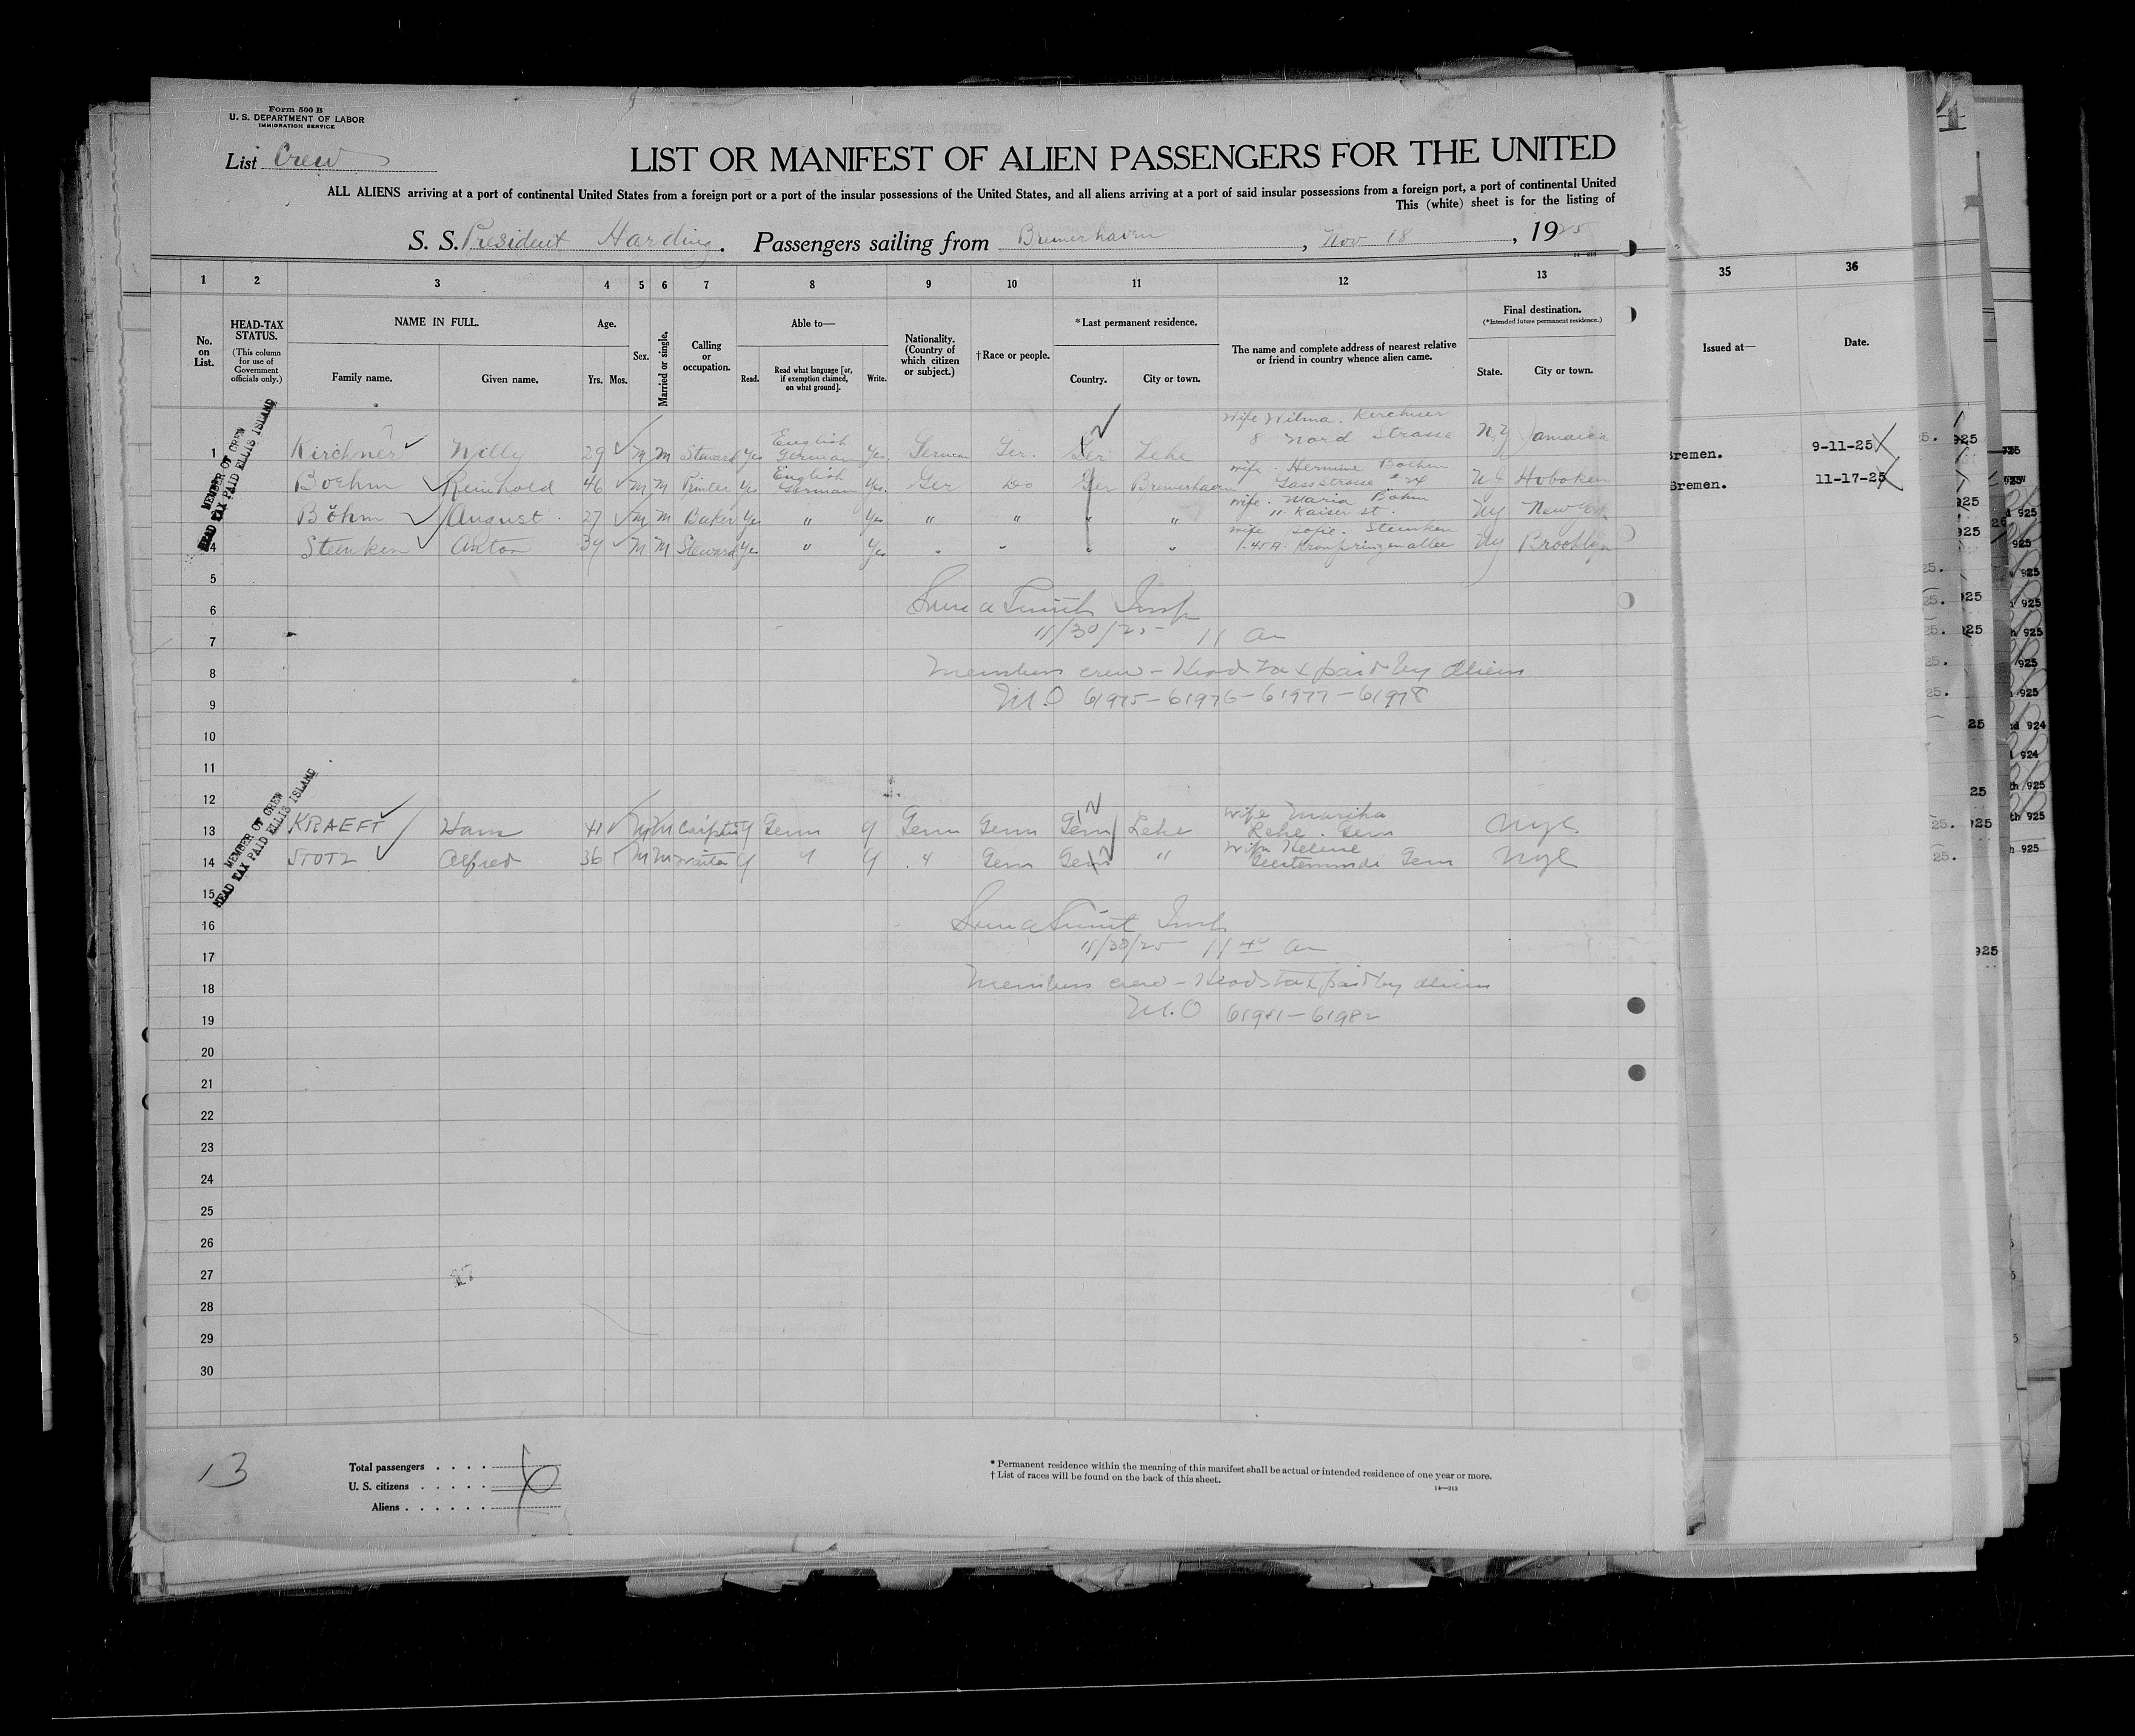 Form 500 B
U. S. DEPARTMENT OF LABOR
IMMIGRATION SERVICE
List Crew
LIST OR MANIFEST OF ALIEN PASSENGERS FOR THE UNITED
ALL ALIENS arriving at a port of continental United States from a foreign port or a port of the insular possessions of the United States, and all aliens arriving at a port of said insular possessions from a foreign port, a port of continental United
This (white) sheet is for the listing of
S. S. President Harding. Passengers sailing from Bremerhaven, Nov 18, 1925
1 2 3 4 5 6 7 8 9 10 11 12 13 35 36
No. on List.
HEAD-TAX STATUS.
(This column for use of Government officials only.)
NAME IN FULL.
Family name. Given name.
Age.
Yrs. Mos.
Sex.
Married or single.
Calling or occupation.
Able to—
Read. Read what language [or, if exemption claimed, on what ground]. Write.
Nationality. (Country of which citizen or subject.)
†Race or people.
*Last permanent residence.
Country. City or town.
The name and complete address of nearest relative or friend in country whence alien came.
Final destination.
(*Intended future permanent residence.)
State. City or town.
Issued at—
Date.
MEMBER OF CREW
HEAD TAX PAID ELLIS ISLAND
wife Wilma. Kirchner
1 Kirchner Willy 29 M M Steward Yes English German Yes. German Ger. Ger Lehe 8 Nord Strasse N.Y Jamaica Bremen. 9-11-25
wife. Hermine Boehm
Boehm Reinhold 46 M M Yes English German Yes. Ger Do Ger Bremerhaven NJ Hoboken Bremen. 11-17-25
wife. Maria Böhm
Böhm August 27 M M Baker Yes " Yes " " " " " Kaiser st. NY New York
wife Sofie. Steenken
4 Steenken Anton 39 M M Steward Yes " Yes " " " " NY Brooklyn
5
6 Insp
7 11/30/25 11 am
8 Members crew – Head tax paid by aliens
9 M.O 61975–61976–61977–61978
10
11
12
MEMBER OF CREW
HEAD TAX PAID ELLIS ISLAND
wife Martha
13 KRAEFT Hans 41 M M y Germ y Germ Germ Germ Lehe Lehe. Germ NYC
wife Helene
14 STOTZ Alfred 36 M M waiter y " y " Germ Germ " Geestemunde Germ NYC
15
16 Insp
17 11/30/25 11 40 am
18 Members crew – Head tax paid by aliens
19 M.O 61981–61982
20
21
22
23
24
25
26
27
28
29
30
13
Total passengers
U. S. citizens
Aliens
* Permanent residence within the meaning of this manifest shall be actual or intended residence of one year or more.
† List of races will be found on the back of this sheet.
14—213